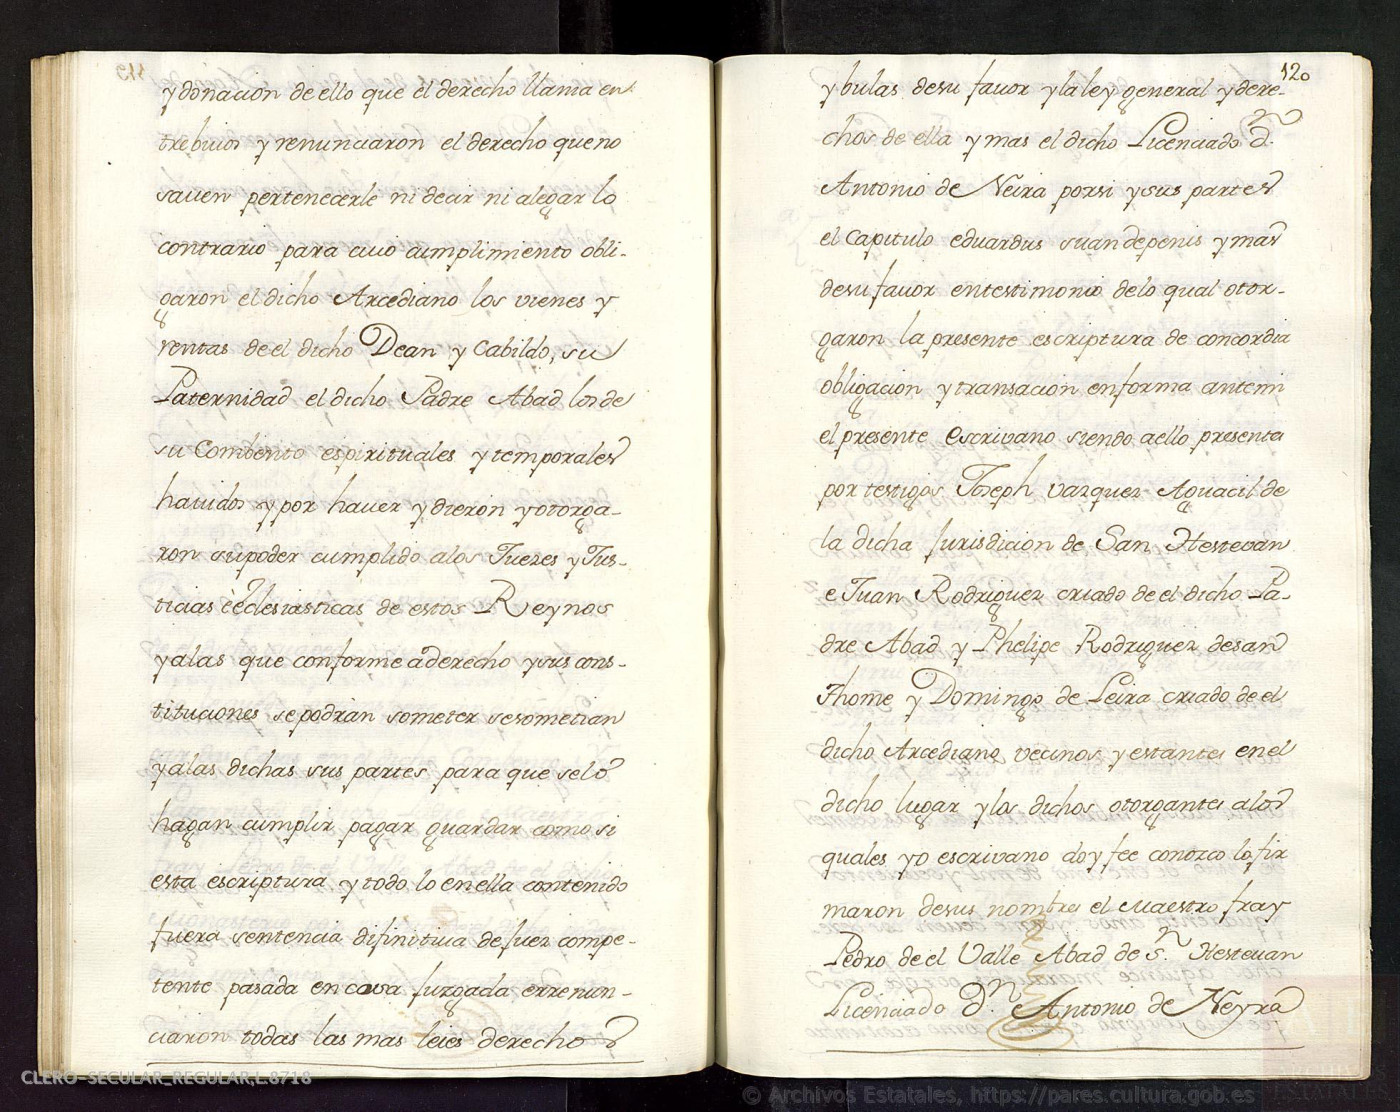 y donacion de ello que el derecho llama en
trebivios y renunciaron el derecho que no
saven pertenecerle ni decir ni alegar lo
contrario para cuio cumplimiento obli-
garon el dicho Arcediano los vienes y
rentas de el dicho Dean y Cabildo, su
Paternidad el dicho Padre Abad los de
su Combento espirituales y temporales
havidos y por haver y dieron y otorga-
ron su poder cumplido a los Juezes y Jus-
ticias ecclesiasticas de estos Reynos
y a las que conforme a derecho y sus cons-
tituciones se podran someter se sometian
y a las dichas sus partes para que se lo
hagan cumplir pagar guardar como si
esta escriptura y todo lo en ella contenido
fuera sentencia difinitiva de juez compe-
tente pasada en cosa juzgada e rrenun-
ciaron todas las mas leies derecho
120
y bulas de su favor y la ley general y dere-
chos de ella y mas el dicho Licenciado D.
Antonio de Neira por si y sus partes
el Capitulo eduardus suan de penis y mas
de su favor en testimonio de lo qual otor-
garon la presente escriptura de concordia
obligacion y transacion en forma ante mi
el presente escrivano siendo a ello presentes
por testigos Joseph Vazquez Aguacil de
la dicha Jurisdicion de San Hestevan
e Juan Rodriguez criado de el dicho Pa-
dre Abad y Phelipe Rodriguez de san
Thome y Domingo de Leira criado de el
dicho Arcediano vecinos y estantes en el
dicho lugar y los dichos otorgantes a los
quales yo escrivano doy fee conozco lo fir
maron de sus nombres el Maestro fray
Pedro de el Valle Abad de S.n Hestevan
Licenciado D.n Antonio de Neyra
CLERO-SECULAR_REGULAR,L.8718
© Archivos Estatales, https://pares.cultura.gob.es